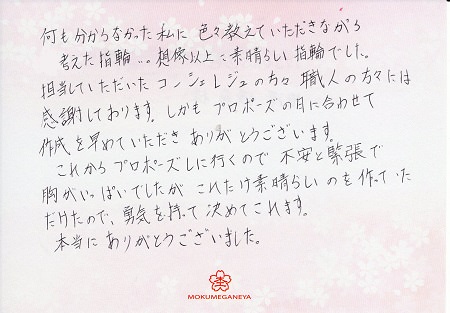 何も分からなかった私に 色々教えていただきながら
考えた指輪…。想像以上に素晴らしい指輪でした。
担当していただいた コンシェレジュの方々 職人の方々には
感謝しております。しかも プロポーズの日に合わせて
作成を早めていただき ありがとうございます。
これから プロポーズしに行くので 不安と緊張で
胸がいっぱいでしたが これだけ素晴らしいのを作っていた
だけたので、勇気を持って 決めてこれます。
本当に ありがとうございました。
MOKUMEGANEYA